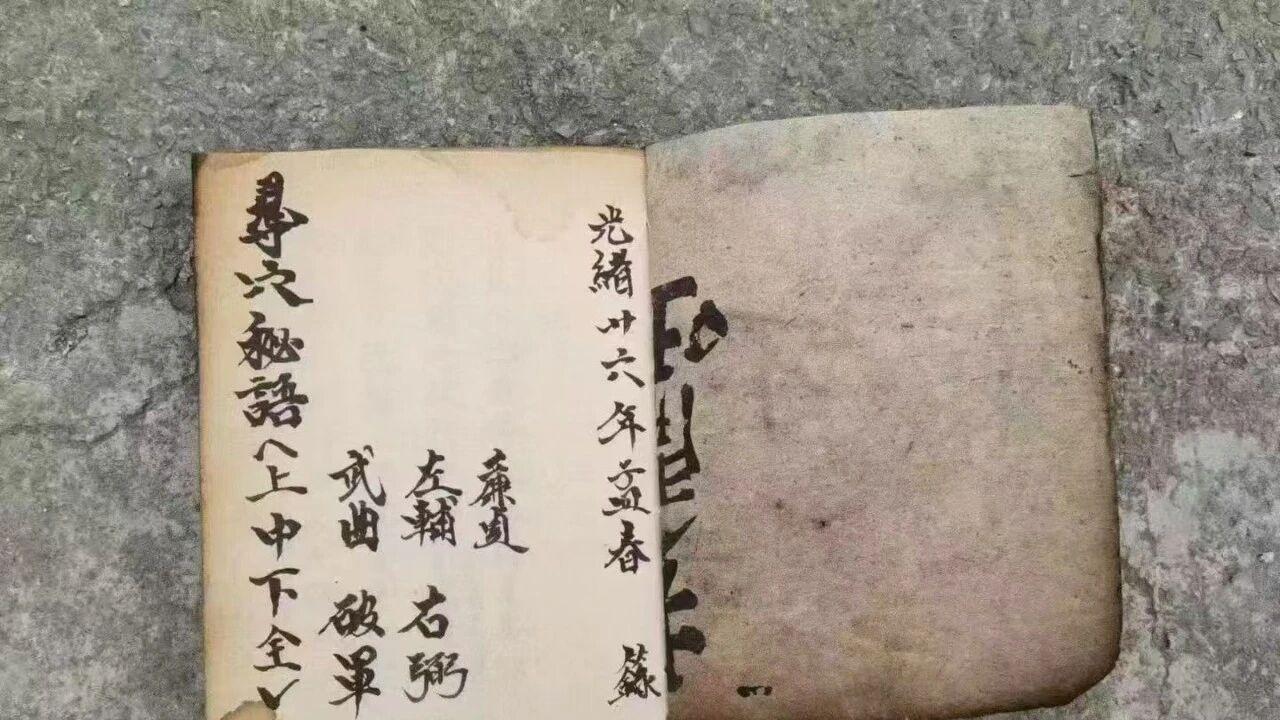 光緒卅六年孟春 錄
廉貞
左輔 右弼
武曲 破軍
尋穴秘語︿上中下全﹀